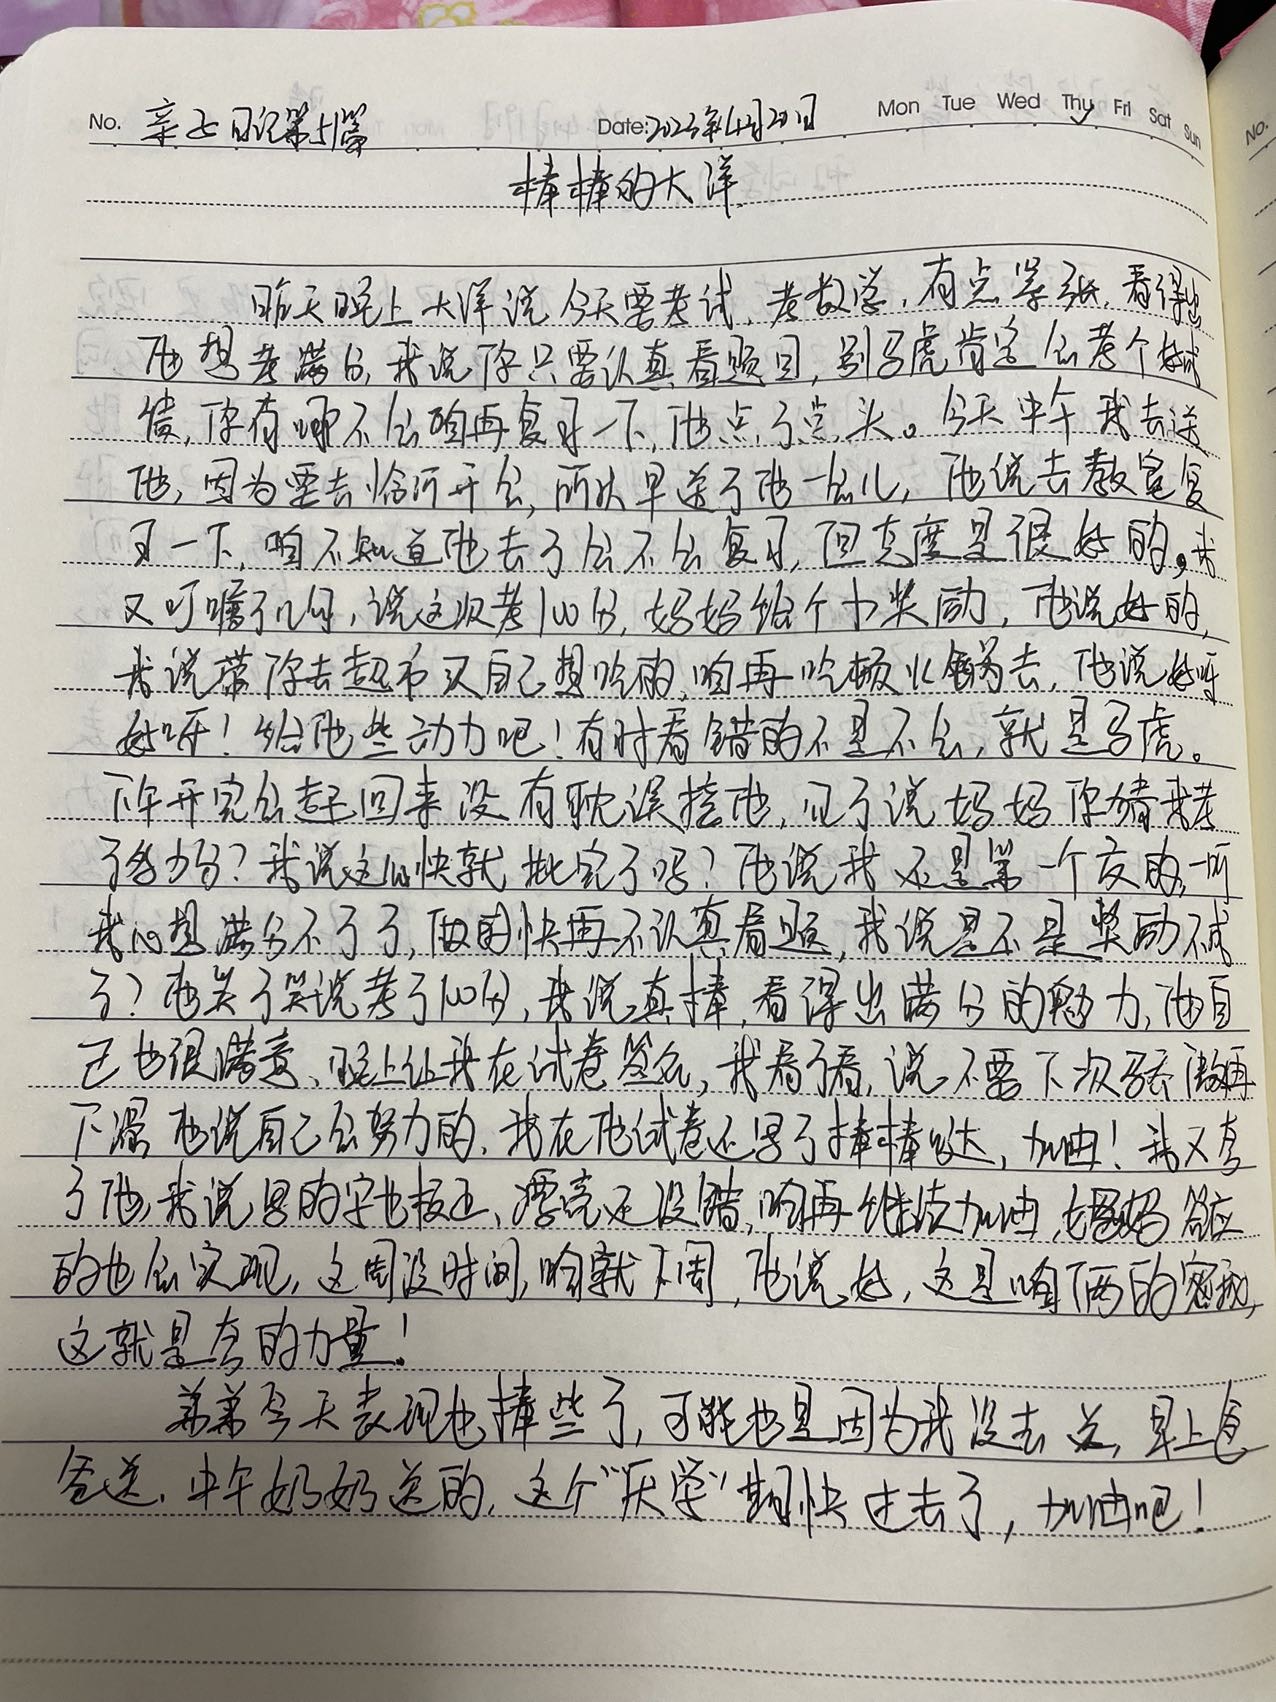 No. 亲子日记第51篇 Date: 2023年4月20日 Mon Tue Wed Thu Fri Sat Sun
No.
棒棒的大洋
昨天晚上大洋说今天要考试,考数学,有点紧张,看得出
他想考满分,我说你只要认真看题目,别马虎肯定会考个好成
绩,你有哪不会咱再复习一下,他点了点头。今天中午我去送
他,因为要去临沂开会,所以早送了他一会儿,他说去教室复
习一下,咱不知道他去了会不会复习,但态度是很好的。我
又叮嘱了几句,说这次考100分,妈妈给个小奖励,他说好的,
我说带你去超市买自己想吃的,咱再吃顿火锅去,他说好呀
好呀!给他些动力吧!有时看错的不是不会,就是马虎。
下午开完会赶回来没有耽误接他,见了说妈妈你猜我考
了多少分?我说这么快就批完了吗?他说我还是第一个交的,一听
我心想满分不了了,做的快再不认真看题,我说是不是奖励不成
了?他笑了笑说考了100分,我说真棒,看得出满分的魅力,他自
己也很满意、晚上让我在试卷签名,我看了看,说不要下次骄傲再
下滑,他说自己会努力的,我在他试卷还写了棒棒哒,加油!我又夸
了他,我说写的字也板正、漂亮还没错,咱再继续加油,妈妈答应
的也会实现,这周没时间,咱就下周,他说好,这是咱俩的密秘,
这就是夸的力量!
弟弟今天表现也棒些了,可能也是因为我没去送,早上爸
爸送,中午奶奶送的,这个"厌学"期快过去了,加油吧!